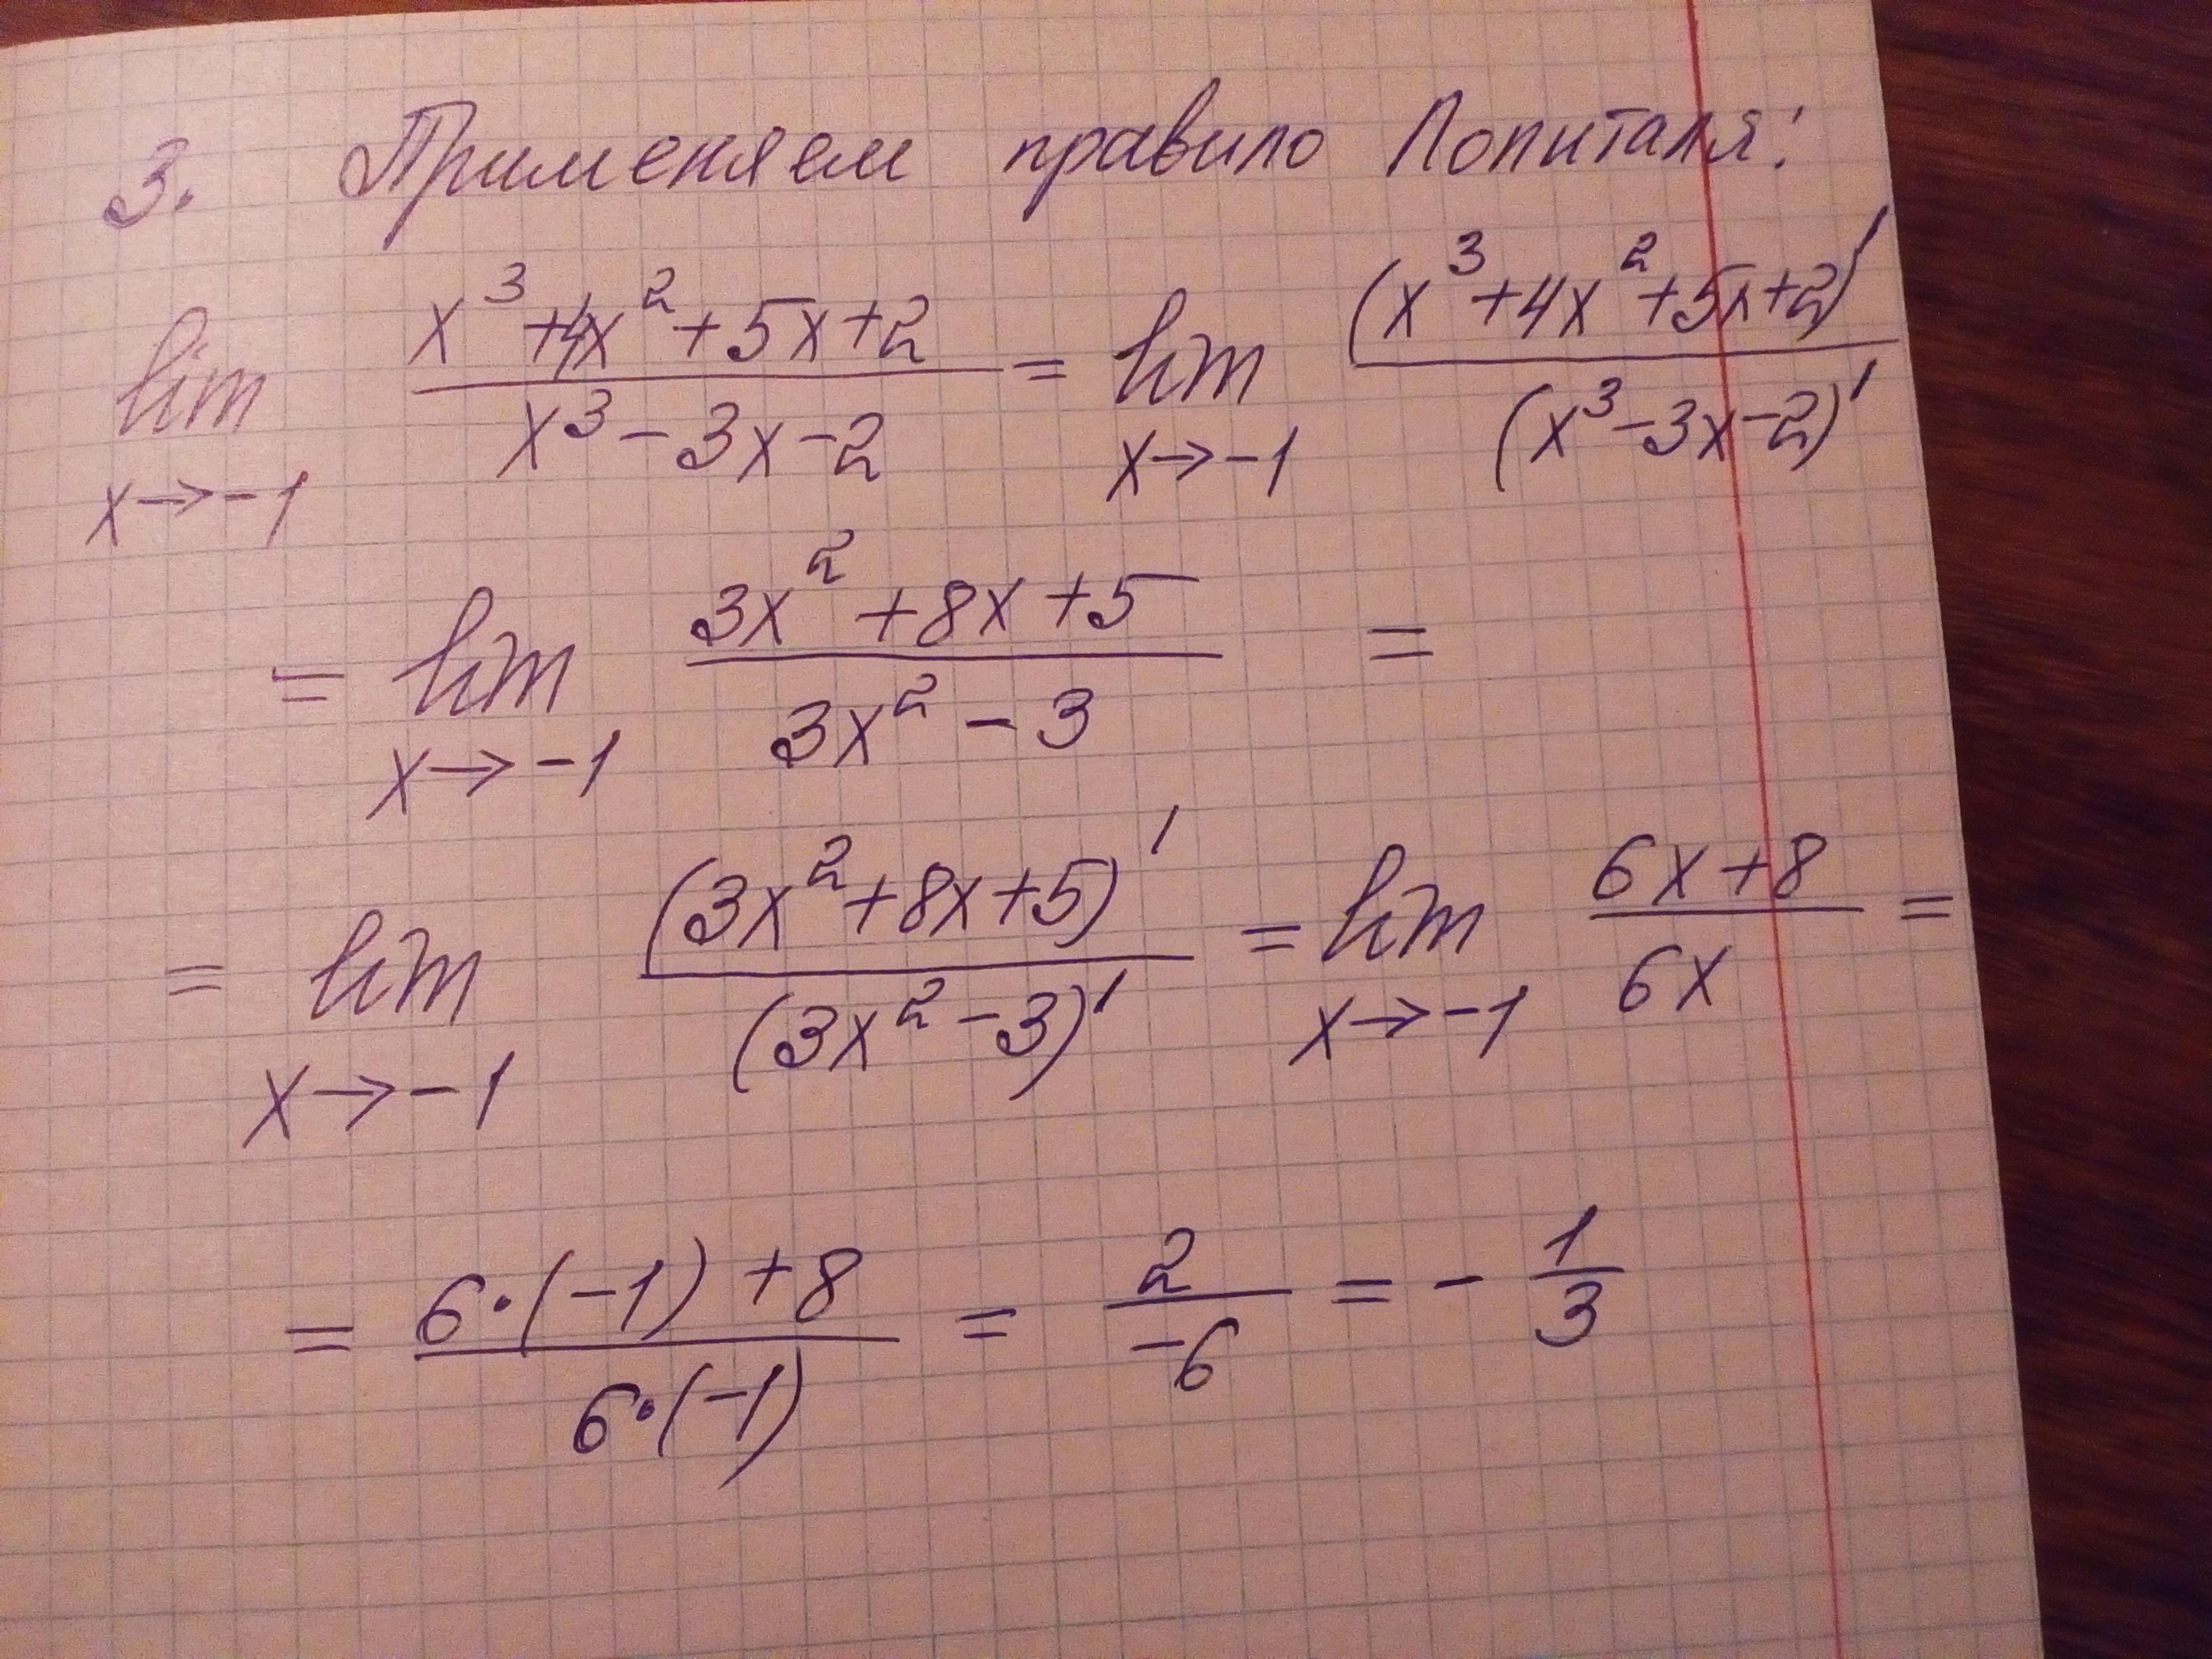 3. Применяем правило Лопиталя:
lim x→-1 (x³+4x²+5x+2)/(x³-3x-2) = lim x→-1 (x³+4x²+5x+2)'/(x³-3x-2)'
= lim x→-1 (3x²+8x+5)/(3x²-3) =
= lim x→-1 (3x²+8x+5)'/(3x²-3)' = lim x→-1 (6x+8)/(6x) =
= (6·(-1)+8)/(6·(-1)) = 2/(-6) = -1/3